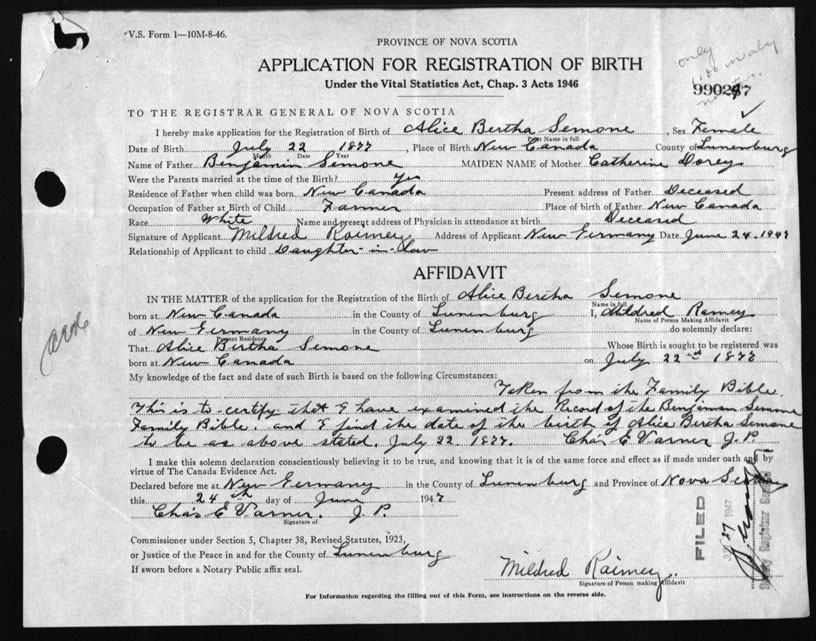 V.S. Form 1—10M-8-46.
PROVINCE OF NOVA SCOTIA
only
APPLICATION FOR REGISTRATION OF BIRTH
Under the Vital Statistics Act, Chap. 3 Acts 1946
TO THE REGISTRAR GENERAL OF NOVA SCOTIA
I hereby make application for the Registration of Birth of Alice Bertha Semone, Sex Female
Print Name in full
Date of Birth July 22 1877, Place of Birth New Canada County of Lunenburg
Month Date Year
Name of Father Benjamin Semone MAIDEN NAME of Mother Catherine Dorey
Were the Parents married at the time of the Birth? Yes
Residence of Father when child was born New Canada Present address of Father Deceased
Occupation of Father at Birth of Child Farmer Place of birth of Father New Canada
Race White Name and present address of Physician in attendance at birth Deceased
Signature of Applicant Mildred Raimey Address of Applicant New Germany Date June 24. 1947
Relationship of Applicant to child Daughter-in-law
AFFIDAVIT
IN THE MATTER of the application for the Registration of the Birth of Alice Bertha Semone
Name in full
born at New Canada in the County of Lunenburg I, Mildred Ramey
Name of Person Making Affidavit
of New Germany in the County of Lunenburg do solemnly declare:
Present Residence
That Alice Bertha Semone Whose Birth is sought to be registered was
born at New Canada on July 22nd 1877
My knowledge of the fact and date of such Birth is based on the following Circumstances:
Taken from the Family Bible.
This is to certify that I have examined the Record of the Benjaman Semone
Family Bible. and I find the date of the birth of Alice Bertha Semone
to be as above stated. July 22. 1877. Chas E Varner J.P.
I make this solemn declaration conscientiously believing it to be true, and knowing that it is of the same force and effect as if made under oath and by
virtue of The Canada Evidence Act.
Declared before me at New Germany in the County of Lunenburg and Province of Nova Scotia
this 24th day of June 1947
Chas E Varner. J.P.
Signature of
Commissioner under Section 5, Chapter 38, Revised Statutes, 1923,
or Justice of the Peace in and for the County of Lunenburg
If sworn before a Notary Public affix seal.
Mildred Raimey.
Signature of Person making Affidavit
For Information regarding the filling out of this Form, see instructions on the reverse side.
FILED
27 1947
Deputy Registrar General